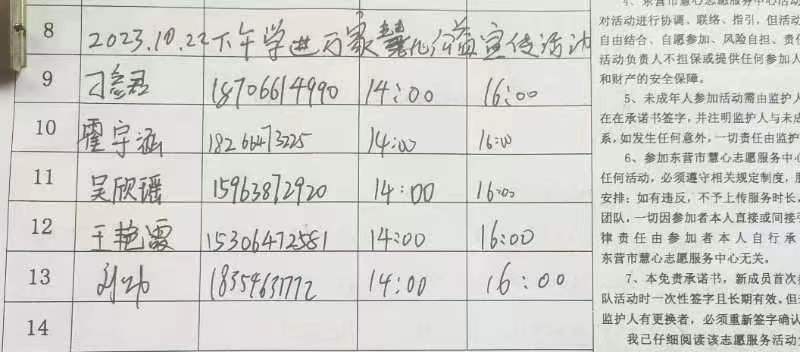 8 2023.10.22下午学进万家 慧心公益宣传活动
9 刁 君 18706614990 14:00 16:00
10 霍宇涵 18266473225 14:00 16:00
11 吴欣瑶 15963872920 14:00 16:00
12 王艳霞 15306472581 14:00 16:00
13 刘 18354631772 14:00 16:00
14
对活动进行协调、联络、指引,但活动
自由结合、自愿参加、风险自担、责任
活动负责人不担保或提供任何参加人
和财产的安全保障。
5、未成年人参加活动需由监护人
在在承诺书签字,并注明监护人与未成
系,如发生任何意外,一切责任由监护
6、参加东营市慧心志愿服务中心
任何活动,必须遵守相关规定制度,服
安排;如有违反,不予上传服务时长,
团队,一切因参加者本人直接或间接
律责任由参加者本人自行承
东营市慧心志愿服务中心无关。
7、本免责承诺书,新成员首次
队活动时一次性签字且长期有效,但
监护人有更换者,必须重新签字确认
我已仔细阅读该志愿服务活动